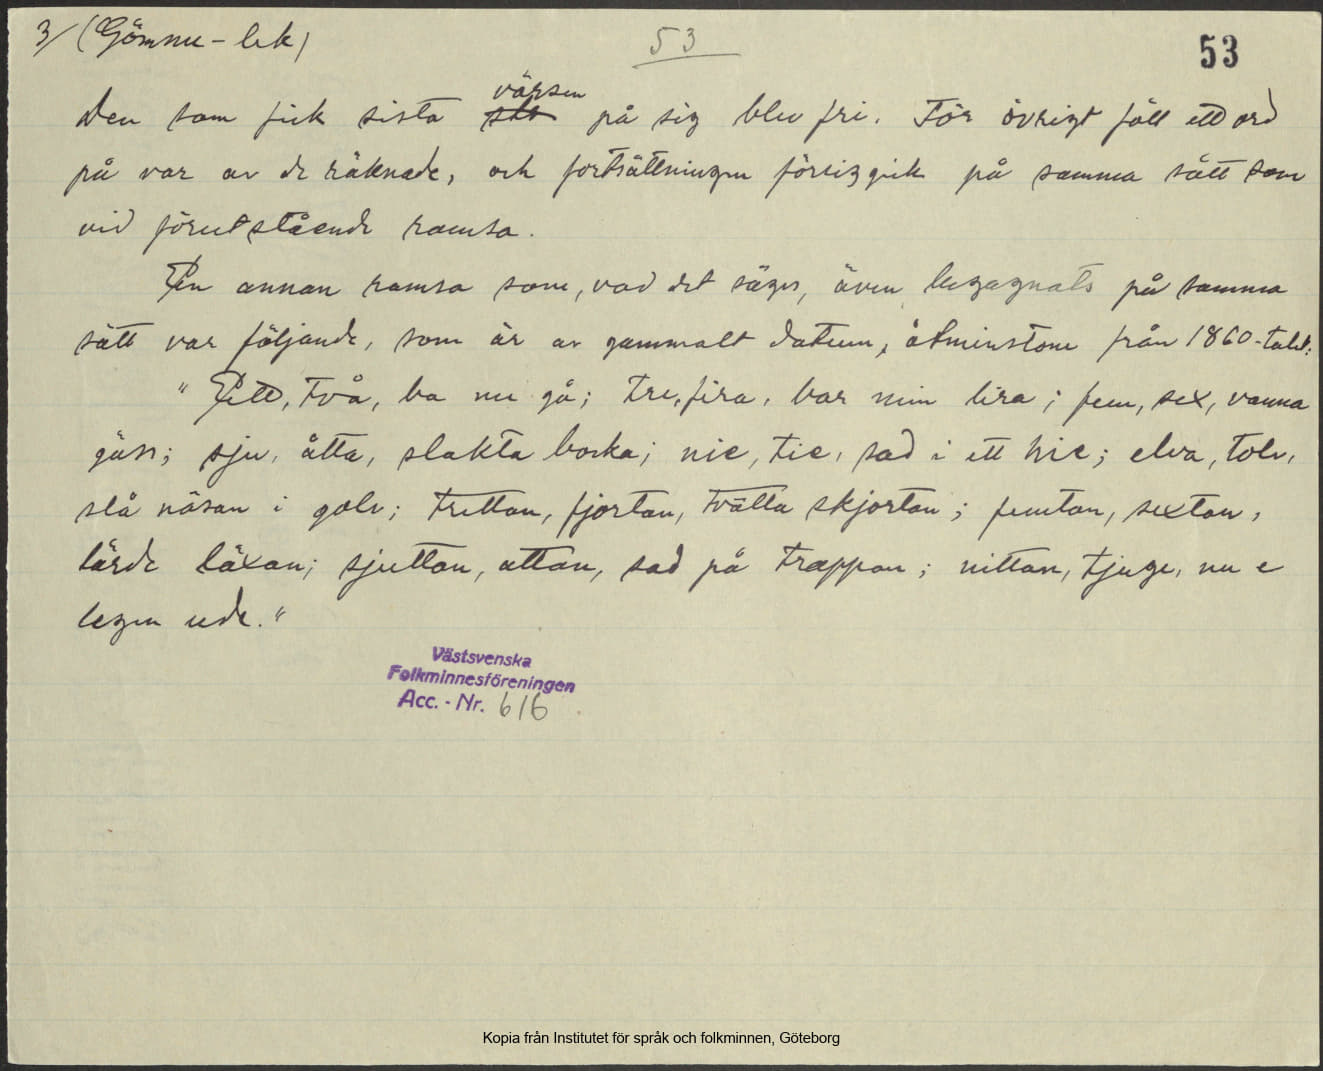 3/ (Gömme-lek)
53
53
värsen
Den som fick sista på sig blev fri. För övrigt föll ett ord
på var av de räknade, och fortsättningen försiggick på samma sätt som
vid förutstående ramsa.
En annan ramsa som, vad det säges, även begagnats på samma
sätt var följande, som är av gammalt datum, åtminstone från 1860-talet:
"Ett, två, ba nu gå; tre, fira, bar min lira; fem, sex, vanna
gäss; sju, åtta, slakta bocka; nie, tie, sad i ett hie; elva, tolv,
slå näsan i golv; tretton, fjortan, tvätta skjortan; femtan, sextan,
lärde läxan; sjuttan, attan, sad på trappan; nittan, tjuge, nu e
legen ude."
Västsvenska
Folkminnesföreningen
Acc. - Nr. 616
Kopia från Institutet för språk och folkminnen, Göteborg